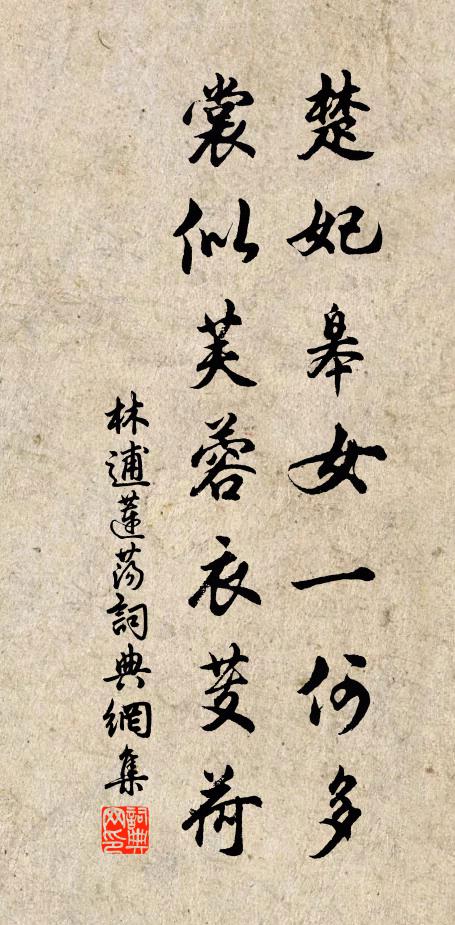 楚妃皋女一何多
裳似芙蓉衣芰荷
林逋蓮蕩詞典網集
詞典网印